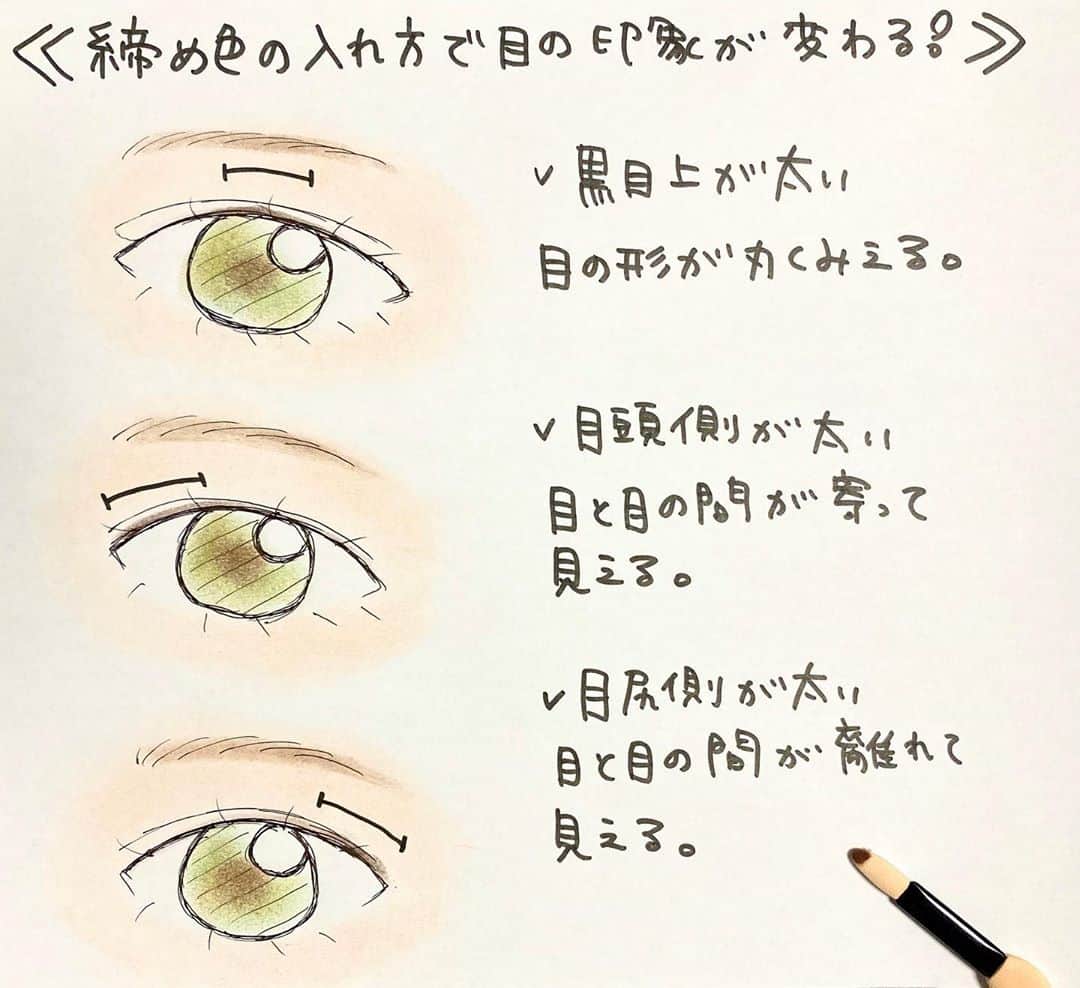 ≪締め色の入れ方で目の印象が変わる!≫
✓黒目上が太い
目の形が丸くみえる。
✓目頭側が太い
目と目の間が寄って
見える。
✓目尻側が太い
目と目の間が離れて
見える。